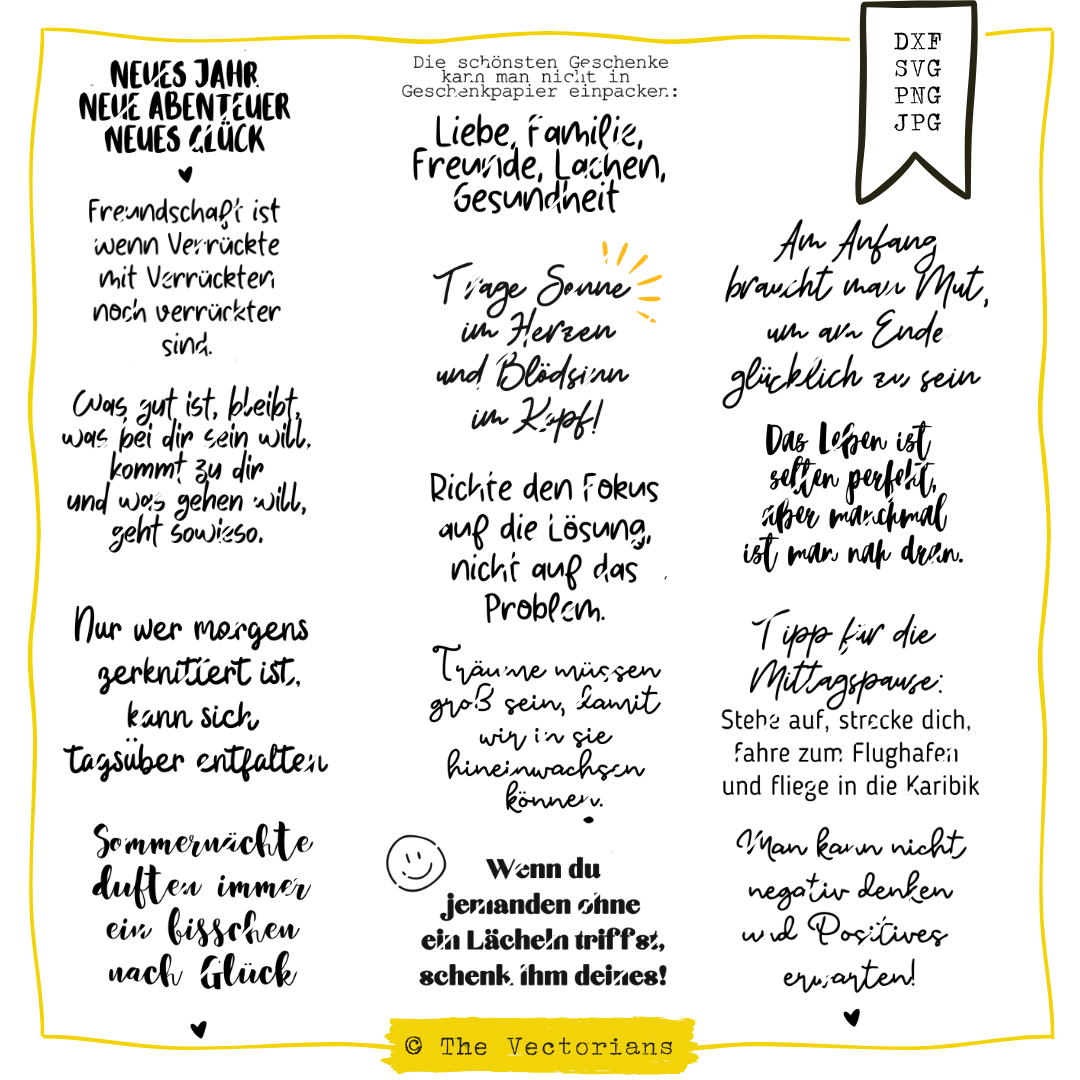 NEUES JAHR
NEUE ABENTEUER
NEUES GLÜCK
Freundschaft ist
wenn Verrückte
mit Verrückten
noch verrückter
sind.
Was gut ist, bleibt,
was bei dir sein will,
kommt zu dir
und was gehen will,
geht sowieso.
Nur wer morgens
zerknittert ist,
kann sich
tagsüber entfalten
Sommernächte
duften immer
ein bisschen
nach Glück
Die schönsten Geschenke
kann man nicht in
Geschenkpapier einpacken:
Liebe, Familie,
Freunde, Lachen,
Gesundheit
Trage Sonne
im Herzen
und Blödsinn
im Kopf!
Richte den Fokus
auf die Lösung,
nicht auf das
Problem.
Träume müssen
groß sein, damit
wir in sie
hineinwachsen
können.
Wenn du
jemanden ohne
ein Lächeln triffst,
schenk ihm deines!
DXF
SVG
PNG
JPG
Am Anfang
braucht man Mut,
um am Ende
glücklich zu sein
Das Leben ist
selten perfekt,
aber manchmal
ist man nah dran.
Tipp für die
Mittagspause:
Stehe auf, strecke dich,
fahre zum Flughafen
und fliege in die Karibik
Man kann nicht
negativ denken
und Positives
erwarten!
© The Vectorians